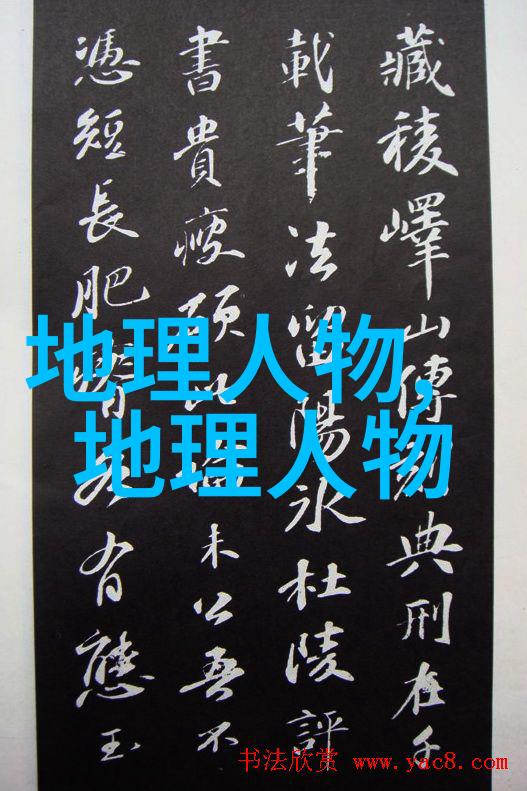 藏稜嶧山傳典刑在千
載筆法留陽氷杜陵評
書貴瘦硬此未公吾不
憑短長肥瘠有態玉
地理人物,
地理人物
书法欣赏 www.yac8.com